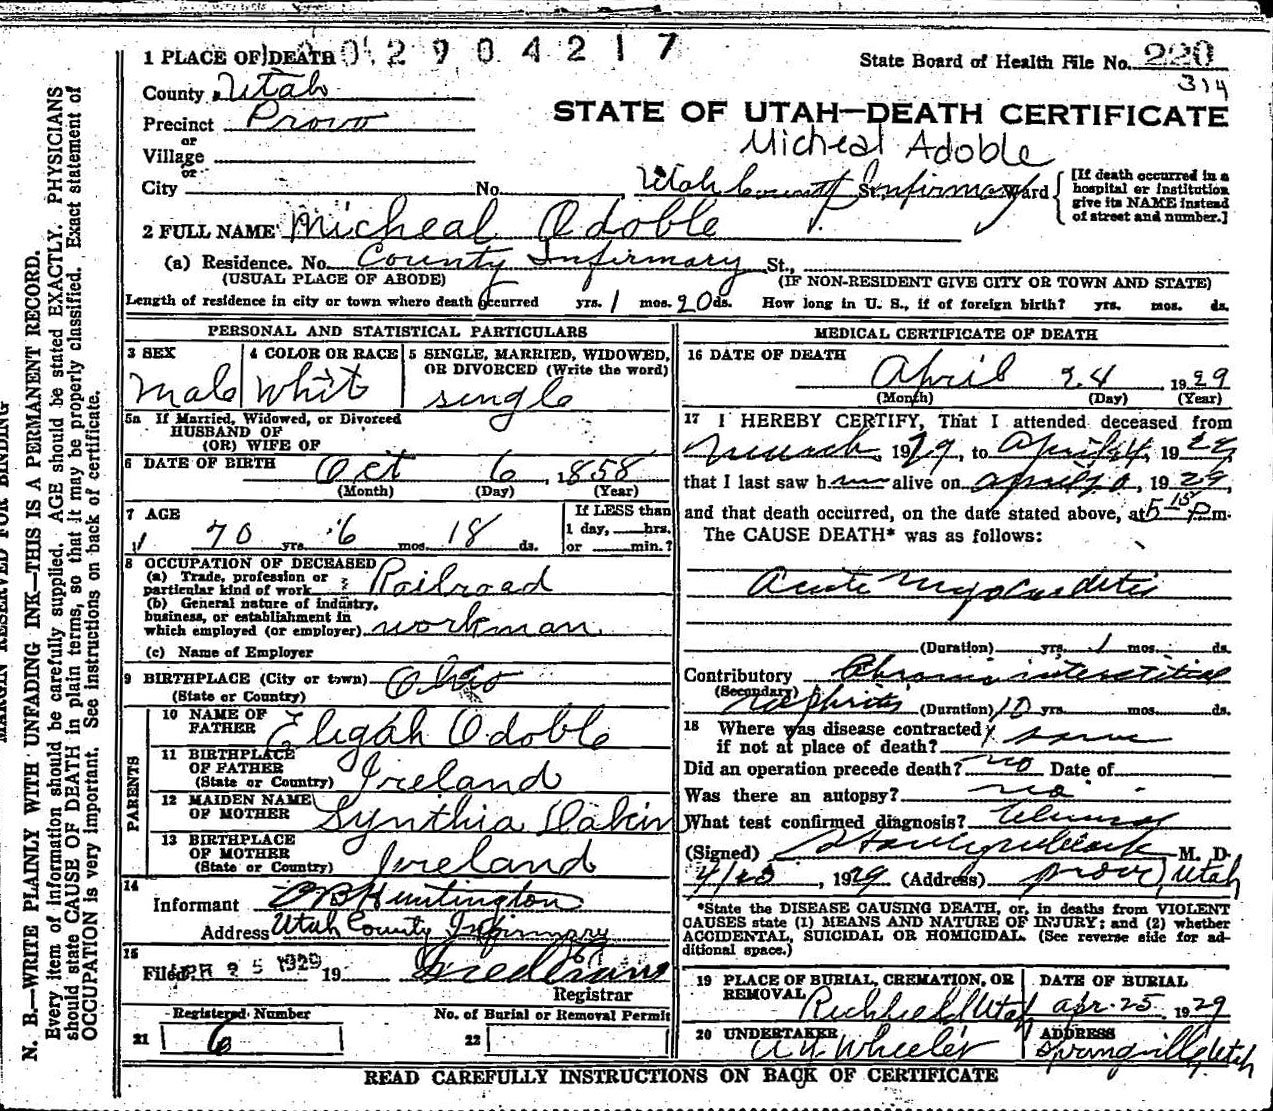 1 PLACE OF DEATH 0 2 9 0 4 2 1 7
State Board of Health File No. 220
314
County Utah
STATE OF UTAH—DEATH CERTIFICATE
Precinct Provo
Micheal Adoble
or
Village
or
City No. Utah County St. Infirmary Ward
[If death occurred in a
hospital or institution
give its NAME instead
of street and number.]
2 FULL NAME Micheal Odoble
(a) Residence. No. County Infirmary St.,
(USUAL PLACE OF ABODE) (IF NON-RESIDENT GIVE CITY OR TOWN AND STATE)
Length of residence in city or town where death occurred yrs. 1 mos. 20 ds. How long in U. S., if of foreign birth? yrs. mos. ds.
PERSONAL AND STATISTICAL PARTICULARS
3 SEX
Male
4 COLOR OR RACE
Whit
5 SINGLE, MARRIED, WIDOWED,
OR DIVORCED (Write the word)
single
5a If Married, Widowed, or Divorced
HUSBAND OF
(OR) WIFE OF
6 DATE OF BIRTH Oct 6, 1858
(Month) (Day) (Year)
7 AGE
70 yrs. 6 mos. 18 ds.
If LESS than
1 day, hrs.
or min.?
8 OCCUPATION OF DECEASED
(a) Trade, profession or
particular kind of work Railroad
(b) General nature of industry,
business, or establishment in
which employed (or employer) workman
(c) Name of Employer
9 BIRTHPLACE (City or town) Ohio
(State or Country)
PARENTS
10 NAME OF
FATHER Eligah Odoble
11 BIRTHPLACE
OF FATHER
(State or Country) Ireland
12 MAIDEN NAME
OF MOTHER Synthia Dakin
13 BIRTHPLACE
OF MOTHER
(State or Country) Ireland
14
Informant Huntington
Address Utah County Infirmary
15
Filed APR 25 1929 19
Registrar
Registered Number
21 6
No. of Burial or Removal Permit
22
MEDICAL CERTIFICATE OF DEATH
16 DATE OF DEATH
April 24 1929
(Month) (Day) (Year)
17 I HEREBY CERTIFY, That I attended deceased from
March, 1929, to April 24, 1929,
that I last saw him alive on April, 1929,
and that death occurred, on the date stated above, at 5 15 P m.
The CAUSE DEATH* was as follows:
Acute Myocarditis
(Duration) yrs. 1 mos. ds.
Contributory Chronic interstitial
(Secondary) nephritis (Duration) 10 yrs. mos. ds.
18 Where was disease contracted
if not at place of death? same
Did an operation precede death? no Date of
Was there an autopsy? no
What test confirmed diagnosis? Clinical
(Signed) M. D.
1929 (Address) Provo, Utah
*State the DISEASE CAUSING DEATH, or, in deaths from VIOLENT
CAUSES state (1) MEANS AND NATURE OF INJURY; and (2) whether
ACCIDENTAL, SUICIDAL OR HOMICIDAL. (See reverse side for ad-
ditional space.)
19 PLACE OF BURIAL, CREMATION, OR
REMOVAL Richfield Utah
DATE OF BURIAL
Apr. 25 1929
20 UNDERTAKER
A. Y. Wheeler
ADDRESS
Springville, Utah
READ CAREFULLY INSTRUCTIONS ON BACK OF CERTIFICATE
MARGIN RESERVED FOR BINDING
N. B.—WRITE PLAINLY WITH UNFADING INK—THIS IS A PERMANENT RECORD.
Every item of information should be carefully supplied. AGE should be stated EXACTLY. PHYSICIANS
should state CAUSE OF DEATH in plain terms, so that it may be properly classified. Exact statement of
OCCUPATION is very important. See instructions on back of certificate.